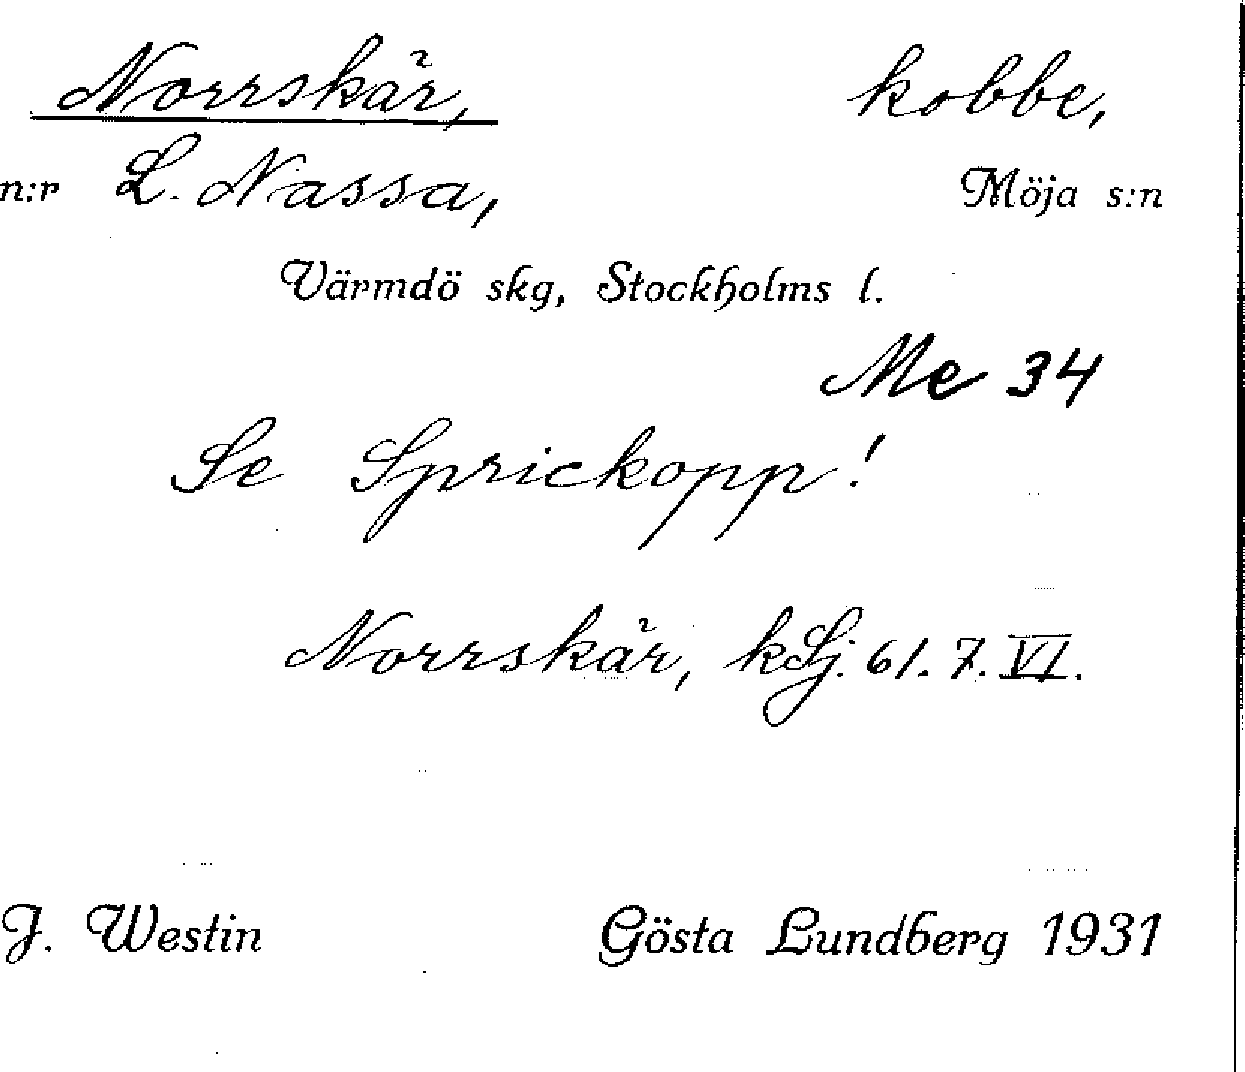 Norrskär, kobbe,
n:r L. Nassa, Möja s:n
Värmdö skg, Stockholms l.
Me 34
Se Sprickopp!
Norrskär, kSj. 61. 7. VI.
J. Westin Gösta Lundberg 1931